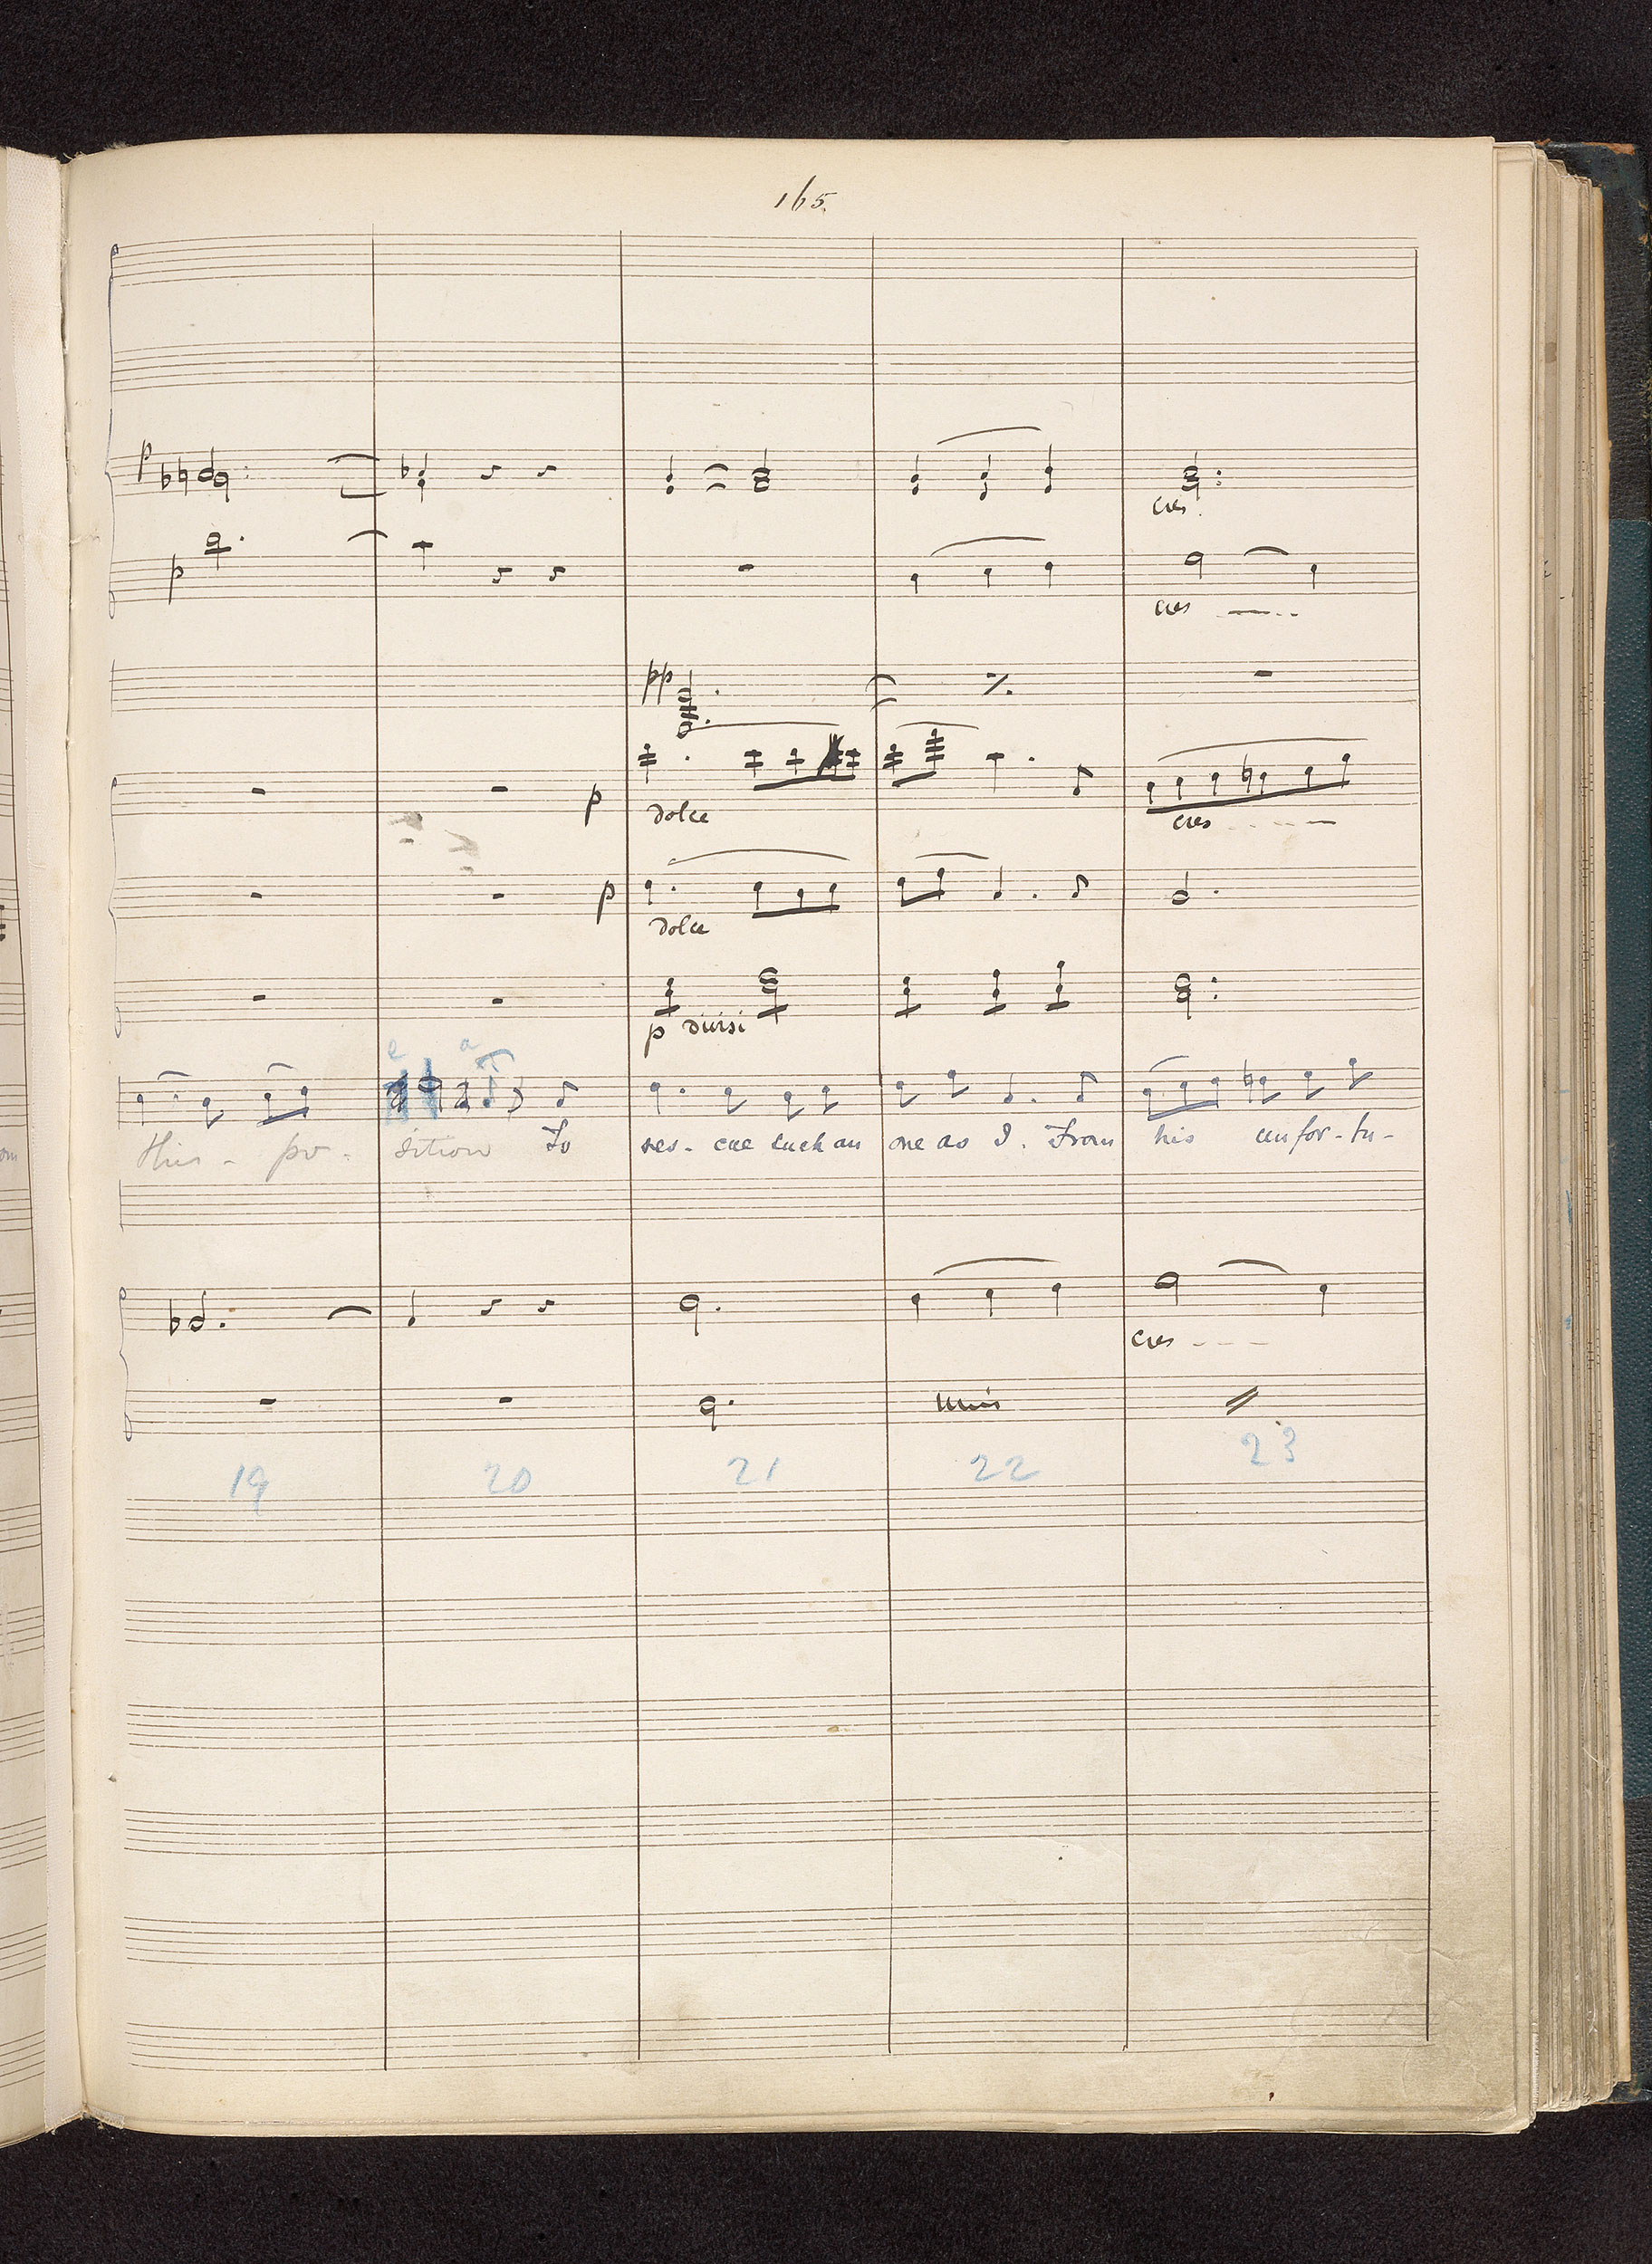 165
p
cres.
p
cres
pp
p dolce cres
p dolce
p divisi
e a
this - po - sition To res - cue such an one as I. From his un for - tu -
cres
unis
19 20 21 22 23